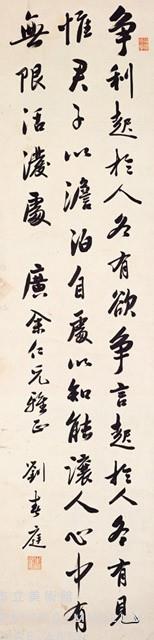 争利起於人各有欲争言起於人各有見
惟君子以澹泊自處以知能讓人心中有
無限活潑處 廣余仁兄雅正 劉春庭
市立美術館